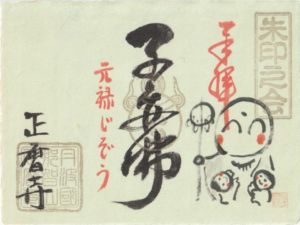 朱印之会
奉拝
子安佛
元禄じぞう
正暦寺